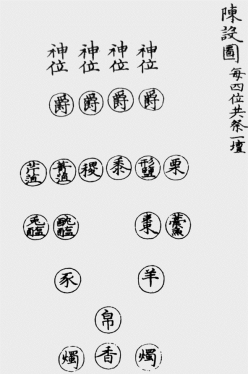 陳設圖 每四位共祭一壇
神位 神位 神位 神位
爵 爵 爵 爵
芹菹 菁菹 稷 黍 形鹽 栗
兔醢 醓醢 棗 藁魚
豕 羊
帛
燭 香 燭